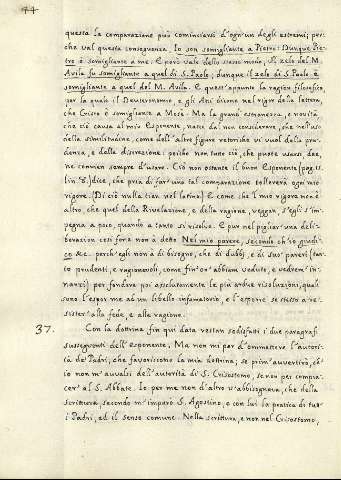 44
questa la comparazione può cominciarsi d'ogn'un degli estremi; per-
che val questa conseguenza. Io son somigliante a Pietro: Dunque Pie-
tro è somigliante a me. E però vale dello stesso modo, Il zelo del M.
Avila fu somigliante a quel di S. Paolo; dunque il zelo di S. Paolo è
somigliante a quel del M. Avila. E quest'appunto la ragion filosofica,
per la quale il Deuteronomio e gli Atti dicono nel rigor della lettera,
che Cristo è somigliante a Mosè. Ma la gran stranezza, e novità
che ciò causa al mio Esponente, nasce dal non considerare, che nell'uso
della similitudine, come dell'altre figure retoriche vi vuol della pru-
denza, e della discrezione: poichè non tutto ciò, che puote usarsi dee,
ne convien sempre d'usare. Ciò non ostante il buon Esponente (pag.
lin. ) dice, che pria di far una tal comparazione tolleverà ogni mio
rigore. (Di ciò nulla v'ha nel latino) E come che il mio rigore non è
altro, che quel della Rivelazione, e della ragione, veggan, s'egli s'im-
pegna a poco, quando a tanto si risolve. E pur nel pigliar una deli-
berazion così forte non à detto Nel mio parere, secondo ch'io giudi-
co &c. perch'egli non à di bisogno, che di dubbj, e di suoi pareri (tan-
to prudenti, e ragionevoli, come fin'or' abbiam veduto, e vedrem in-
nanzi) per fondare poi assolutamente le più ardite risoluzioni, quali
sono l'espor me ad un libello infamatorio, e l'esporre se stesso a re-
sister' alla fede, e alla ragione.
37. Con la dottrina fin qui data restan sodisfatti i due paragrafi
susseguenti dell'esponente. Ma non mi par d'ommettere l'autori-
tà de' Padri, che favoriscono la mia dottrina, se prim'avvertirò, ch'
io non m'avvalsi dell'autorità di S. Crisostomo, se non per compia-
cer' al S. Abbate. Io per me non d'altro n'abbisognava, che della
scrittura, secondo m'imparò S. Agostino, e con lui la pratica di tut-
t'i Padri, ed il senso comune. Nella scrittura, e non nel Crisostomo,